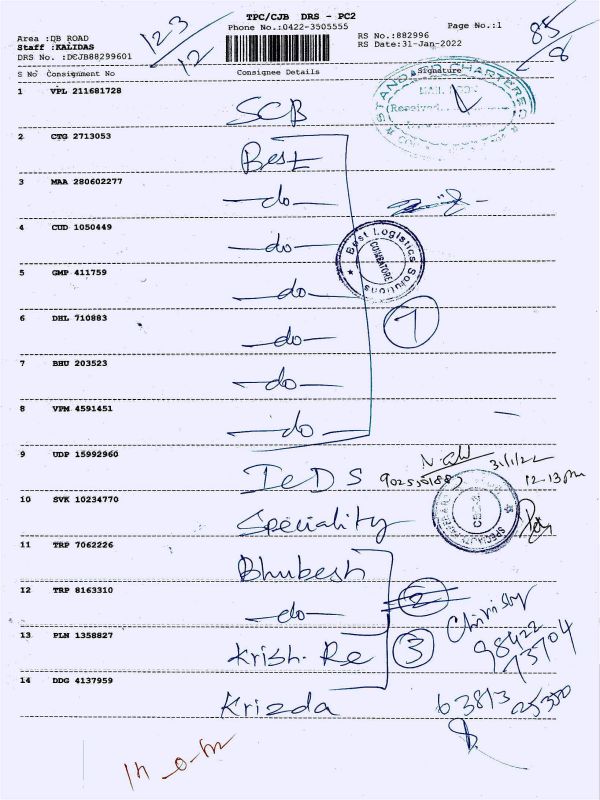 TPC/CJB DRS - PC2
Phone No.:0422-3505555
Page No.:1
Area :DB ROAD
Staff :KALIDAS
DRS No. :DCJB88299601
RS No.:882996
RS Date:31-Jan-2022
123/12
85/8
S No Consignment No Consignee Details Signature
1 VPL 211681728 SCB
STANDARD CHARTERED
MAIL ROOM
Received
2 CTG 2713053 Best
3 MAA 280602277 -do-
4 CUD 1050449 -do-
Best Logistics Solutions
COIMBATORE
5 GMP 411759 -do-
7
6 DHL 710883 -do-
7 BHU 203523 -do-
8 VPM 4591451 -do-
9 UDP 15992960 IeDS
31/1/22
12-13pm
10 SVK 10234770 Speciality
11 TRP 7062226 Bhubesh
12 TRP 8163310 -do-
2
13 PLN 1358827 Krish. Re
3
98422
73704
14 DDG 4137959 Krizda
63813 25350